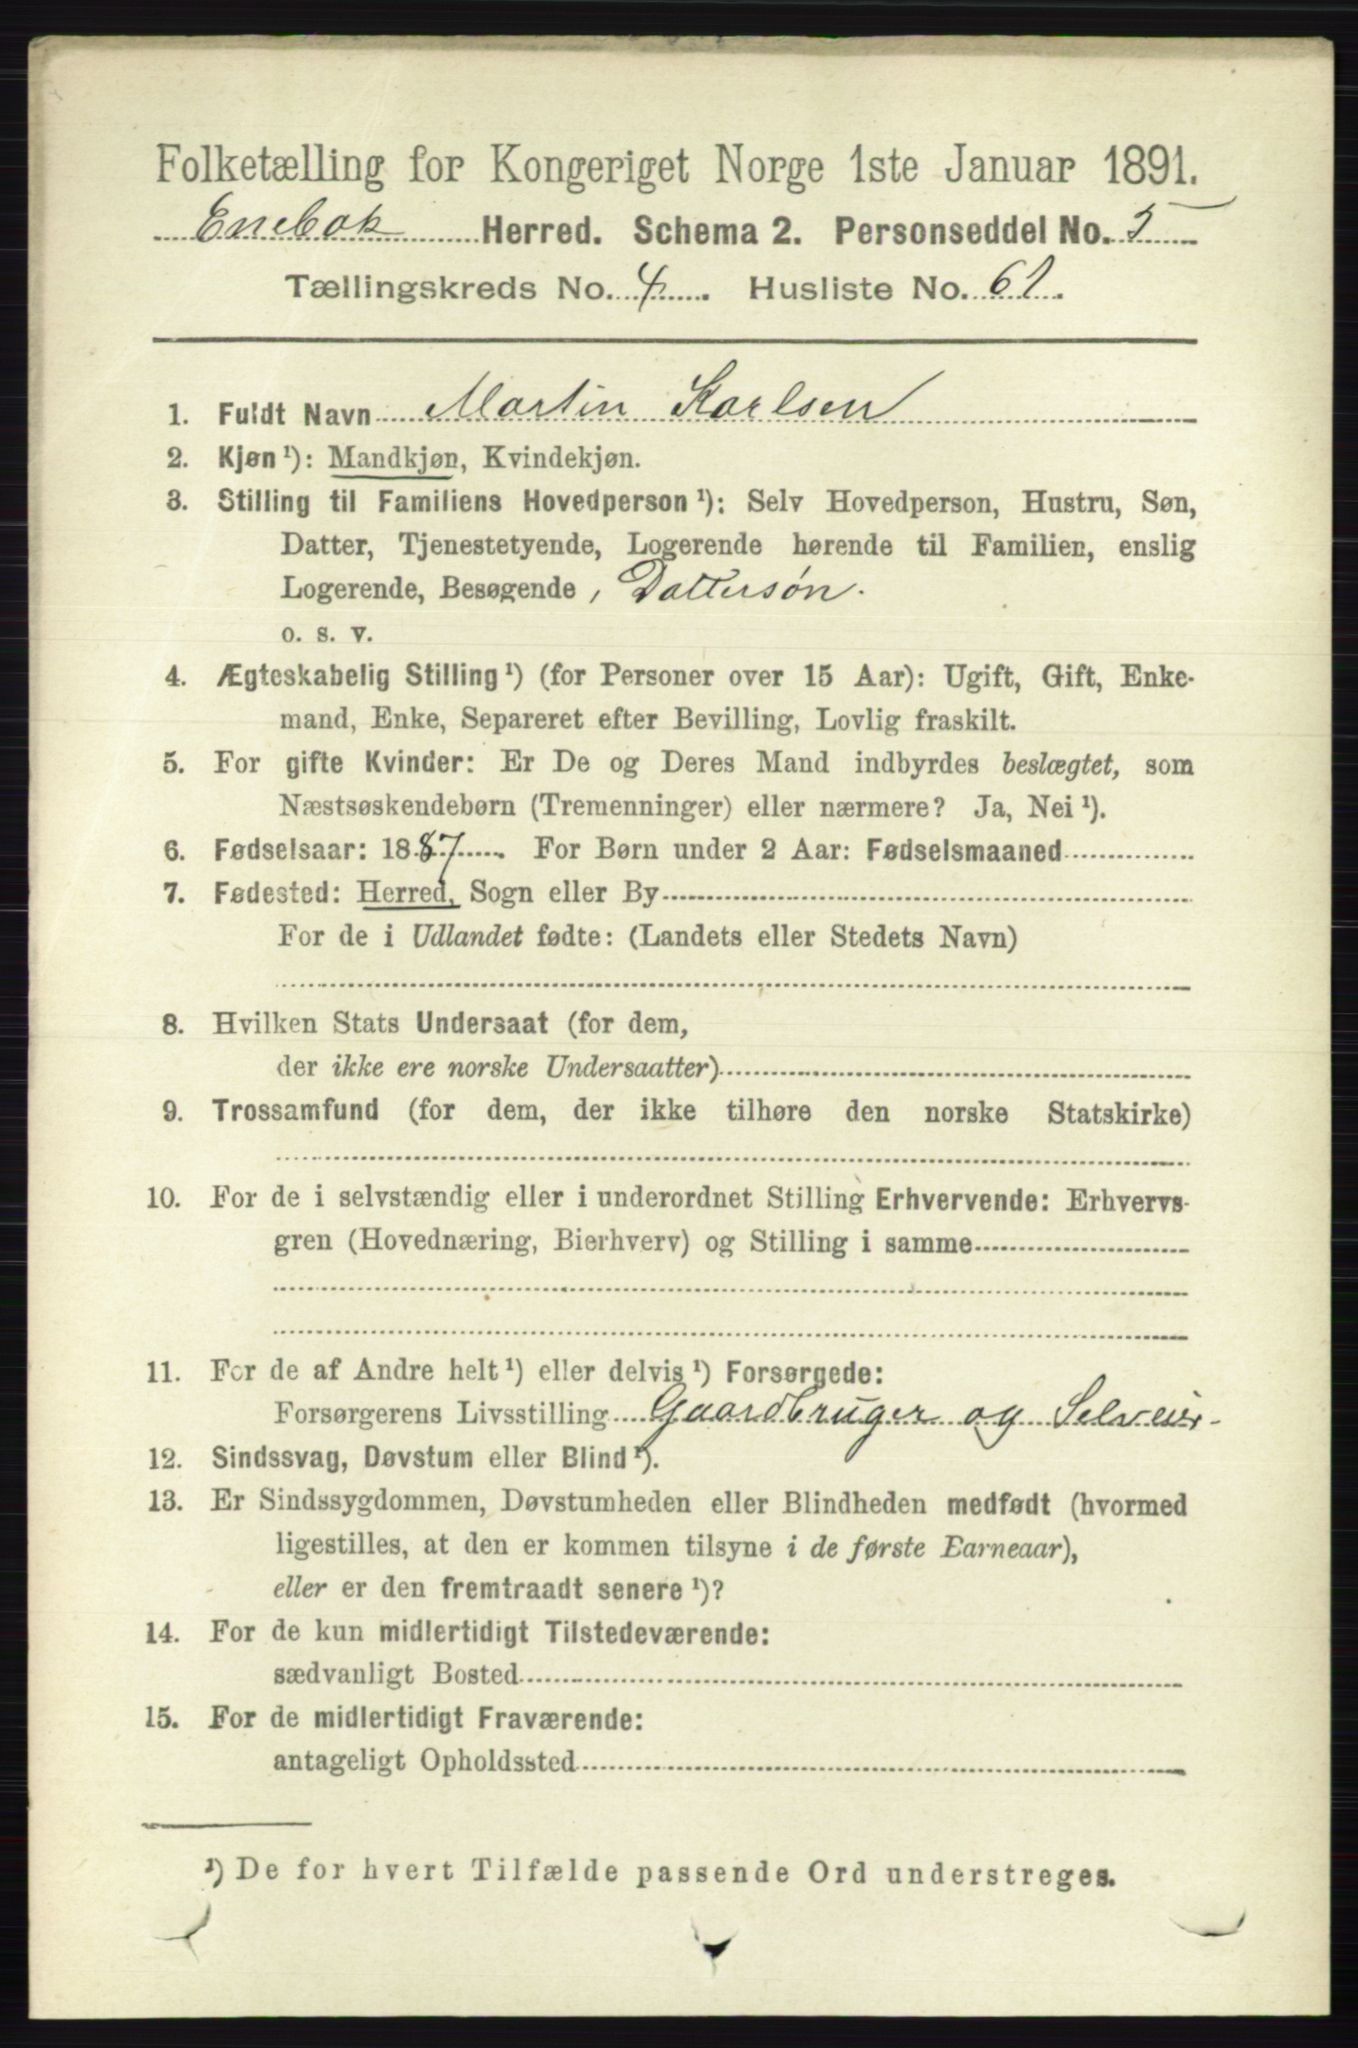 Folketælling for Kongeriget Norge 1ste Januar 1891.
Enebak Herred. Schema 2. Personseddel No. 5
Tællingskreds No. 4. Husliste No. 61.
1. Fuldt Navn Martin Karlsen
2. Kjøn¹): Mandkjøn, Kvindekjøn.
3. Stilling til Familiens Hovedperson¹): Selv Hovedperson, Hustru, Søn,
Datter, Tjenestetyende, Logerende hørende til Familien, enslig
Logerende, Besøgende, Dattersøn.
o. s. v.
4. Ægteskabelig Stilling¹) (for Personer over 15 Aar): Ugift, Gift, Enke-
mand, Enke, Separeret efter Bevilling, Lovlig fraskilt.
5. For gifte Kvinder: Er De og Deres Mand indbyrdes beslægtet, som
Næstsøskendebørn (Tremenninger) eller nærmere? Ja, Nei¹).
6. Fødselsaar: 1887. For Børn under 2 Aar: Fødselsmaaned
7. Fødested: Herred, Sogn eller By
For de i Udlandet fødte: (Landets eller Stedets Navn)
8. Hvilken Stats Undersaat (for dem,
der ikke ere norske Undersaatter)
9. Trossamfund (for dem, der ikke tilhøre den norske Statskirke)
10. For de i selvstændig eller i underordnet Stilling Erhvervende: Erhvervs-
gren (Hovednæring, Bierhverv) og Stilling i samme
11. For de af Andre helt¹) eller delvis¹) Forsørgede:
Forsørgerens Livsstilling Gaardbruger og Selveier.
12. Sindssvag, Døvstum eller Blind¹).
13. Er Sindssygdommen, Døvstumheden eller Blindheden medfødt (hvormed
ligestilles, at den er kommen tilsyne i de første Barneaar),
eller er den fremtraadt senere¹)?
14. For de kun midlertidigt Tilstedeværende:
sædvanligt Bosted
15. For de midlertidigt Fraværende:
antageligt Opholdssted
¹) De for hvert Tilfælde passende Ord understreges.